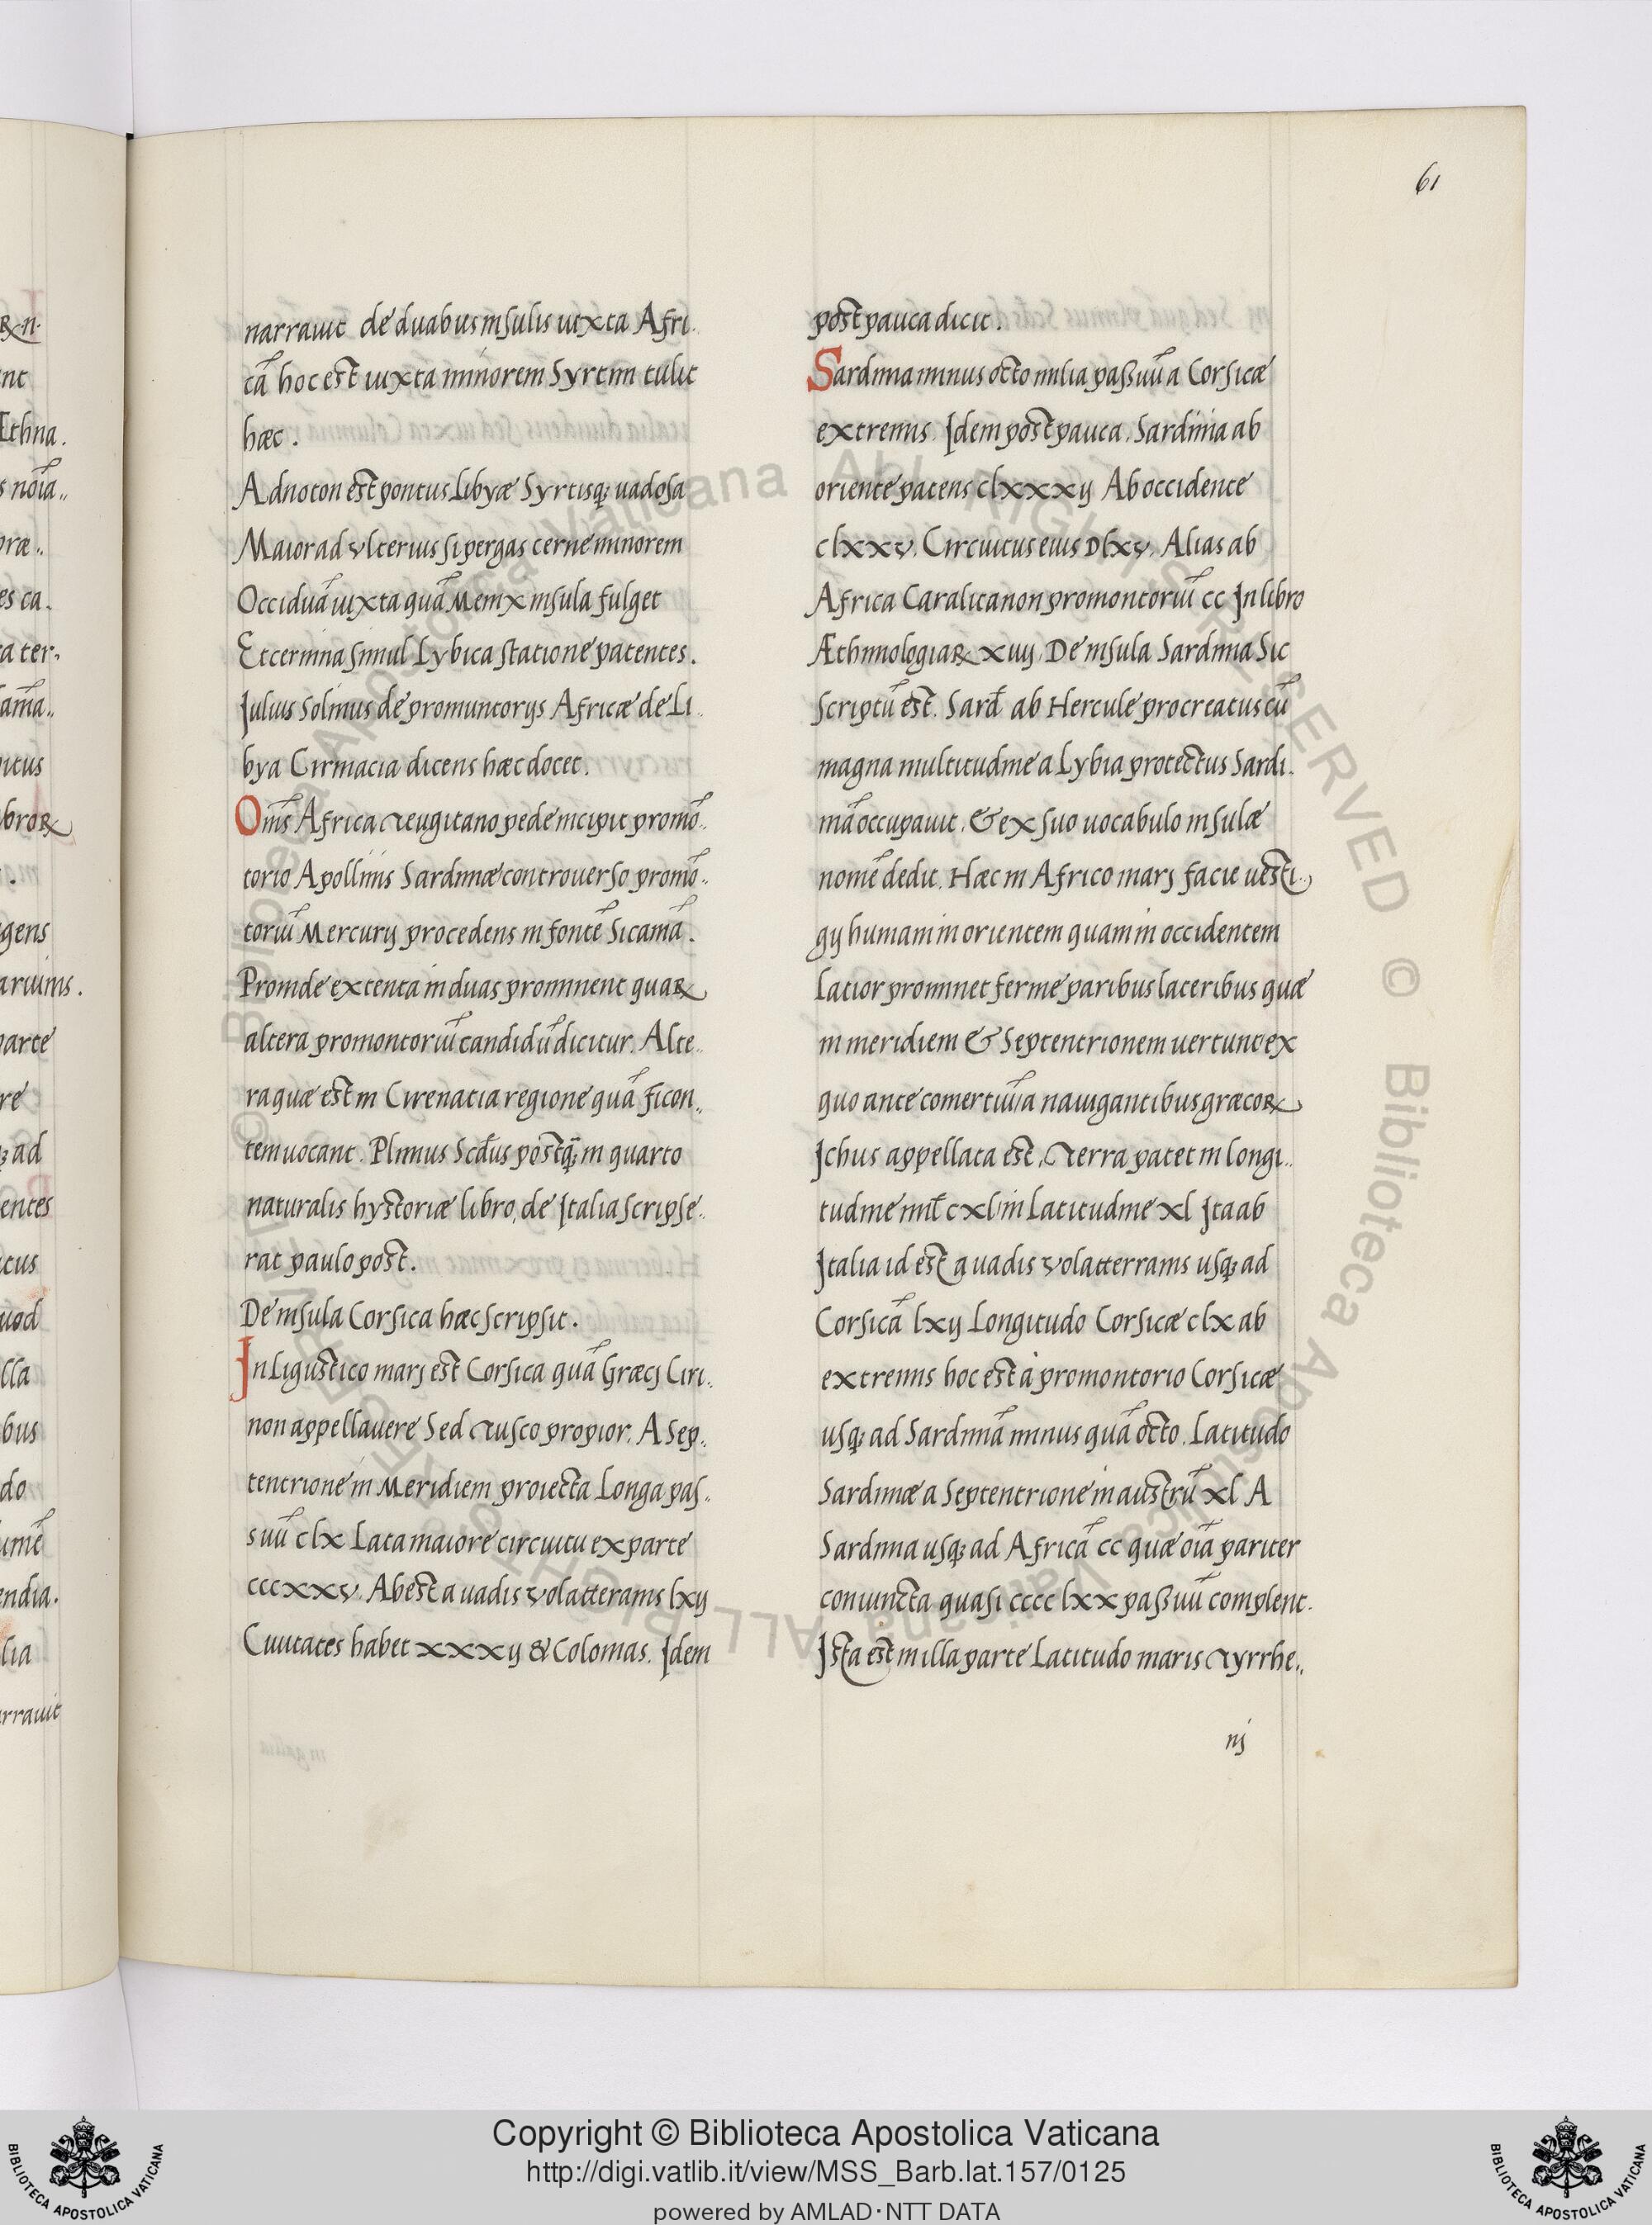 61
narrauit de duabus insulis iuxta Afri.
cā hoc est iuxta minorem Syrtim tulit
hæc.
Adnoton est pontus Libyæ Syrtisq; uadosa
Maiorad vlterius si pergas cerne minorem
Occiduā iuxta quā Meninx insula fulget
Et cermina simul Lybica statione patentes.
Julius Solinus de promuntorijs Africæ de Li..
bya Cirmacia dicens hæc docet.
Omīs Africa Zeugitano pede incipit promō..
torio Apollinis Sardiniæ controuerso promō..
toriū Mercurij procedens in fontē Sicamā.
Proinde extenta in duas prominent quaꝝ
altera promontoriū candidū dicitur. Alte..
ra quæ est in Cirenatia regione quā ficon..
tem uocant. Plinius Scd̄us postq̄; in quarto
naturalis hystoriæ libro, de Italia scripse..
rat paulo post.
De insula Corsica hæc scripsit.
In Ligustico marj est Corsica quā Græcj Ciri..
non appellauere Sed Tusco propior. A sep..
tentrione in Meridiem proiecta Longa pas..
suū clx Lata maiore circuitu ex parte
cccxxv. Abest a uadis volatteranis lxij
Ciuitates habet xxxij & Colonias. Idem
post pauca dicit.
Sardinia minus octo milia passuū a Corsicæ
extremis. Idem post pauca. Sardinia ab
oriente patens clxxxij Ab occidente
clxxv. Circuitus eius Dlxv. Alias ab
Africa Caralitanon promontoriū cc In libro
Æthimologiaꝝ xiiij. De insula Sardinia Sic
scriptū est. Sard̄ ab Hercule procreatus cū
magna multitudine a Lybia protectus Sardi.
niā occupauit. & ex suo uocabulo insulæ
nomē dedit. Hæc in Africo marj facie uesti..
gij humani in orientem quam in occidentem
Latior prominet ferme paribus lateribus quæ
in meridiem & Septentrionem uertunt ex
quo ante comertiū a nauigantibus græcoꝝ
Ichus appellata est. Terra patet in longi..
tudine mil̄ cxl in Latitudine xl Ita ab
Italia id est a uadis volatterranis usq; ad
Corsicā lxij Longitudo Corsicæ clx ab
extremis hoc est à promontorio Corsicæ
usq; ad Sardiniā minus quā octo. Latitudo
Sardiniæ a Septentrione in austrū xl A
Sardinia usq; ad Africā cc quæ oīa pariter
coniuncta quasi cccc lxx passuū complent.
Ista est in illa parte Latitudo maris Tyrrhe..
nj
Copyright © Biblioteca Apostolica Vaticana
http://digi.vatlib.it/view/MSS_Barb.lat.157/0125
powered by AMLAD·NTT DATA